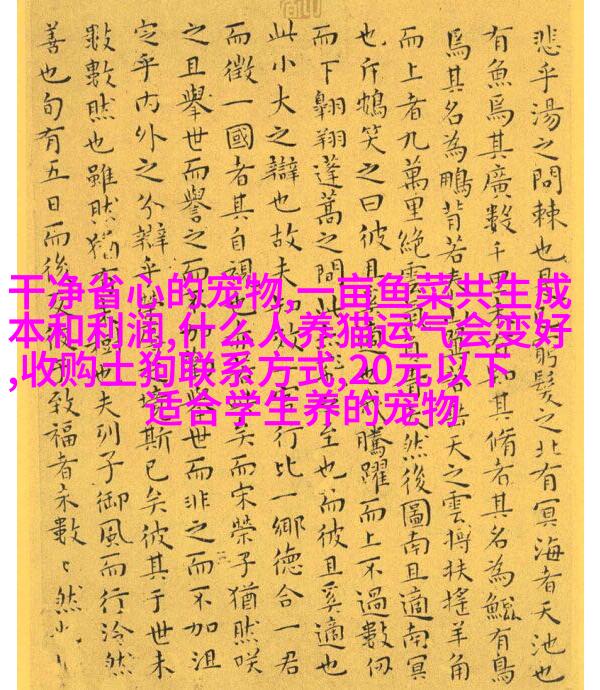 悲乎湯之問棘也窮髮之北有冥海者天池也
有魚焉其廣數千里未有知其脩者其名為鯤有鳥
焉其名為鵬背若泰山雲摶扶搖羊角
而上者九萬里絕雲然後圖南且適南冥
也斥鴳笑之曰彼且騰躍而上不過數仞
而下翱翔蓬蒿之間此至也而彼且奚適也
此小大之辯也故夫行比一鄉德合一君
而徵一國者其自視矣而宋榮子猶然咲
之且舉世而譽之而舉世而非之而不加沮
定乎内外之分辯乎境斯已矣彼其于世未
數數然也雖然猶樹也夫列子御風而行泠然
善也旬有五日而後致福者未數〻然也
干净省心的宠物,一亩鱼菜共生成
本和利润,什么人养猫运气会变好
,收购土狗联系方式,20元以下
适合学生养的宠物